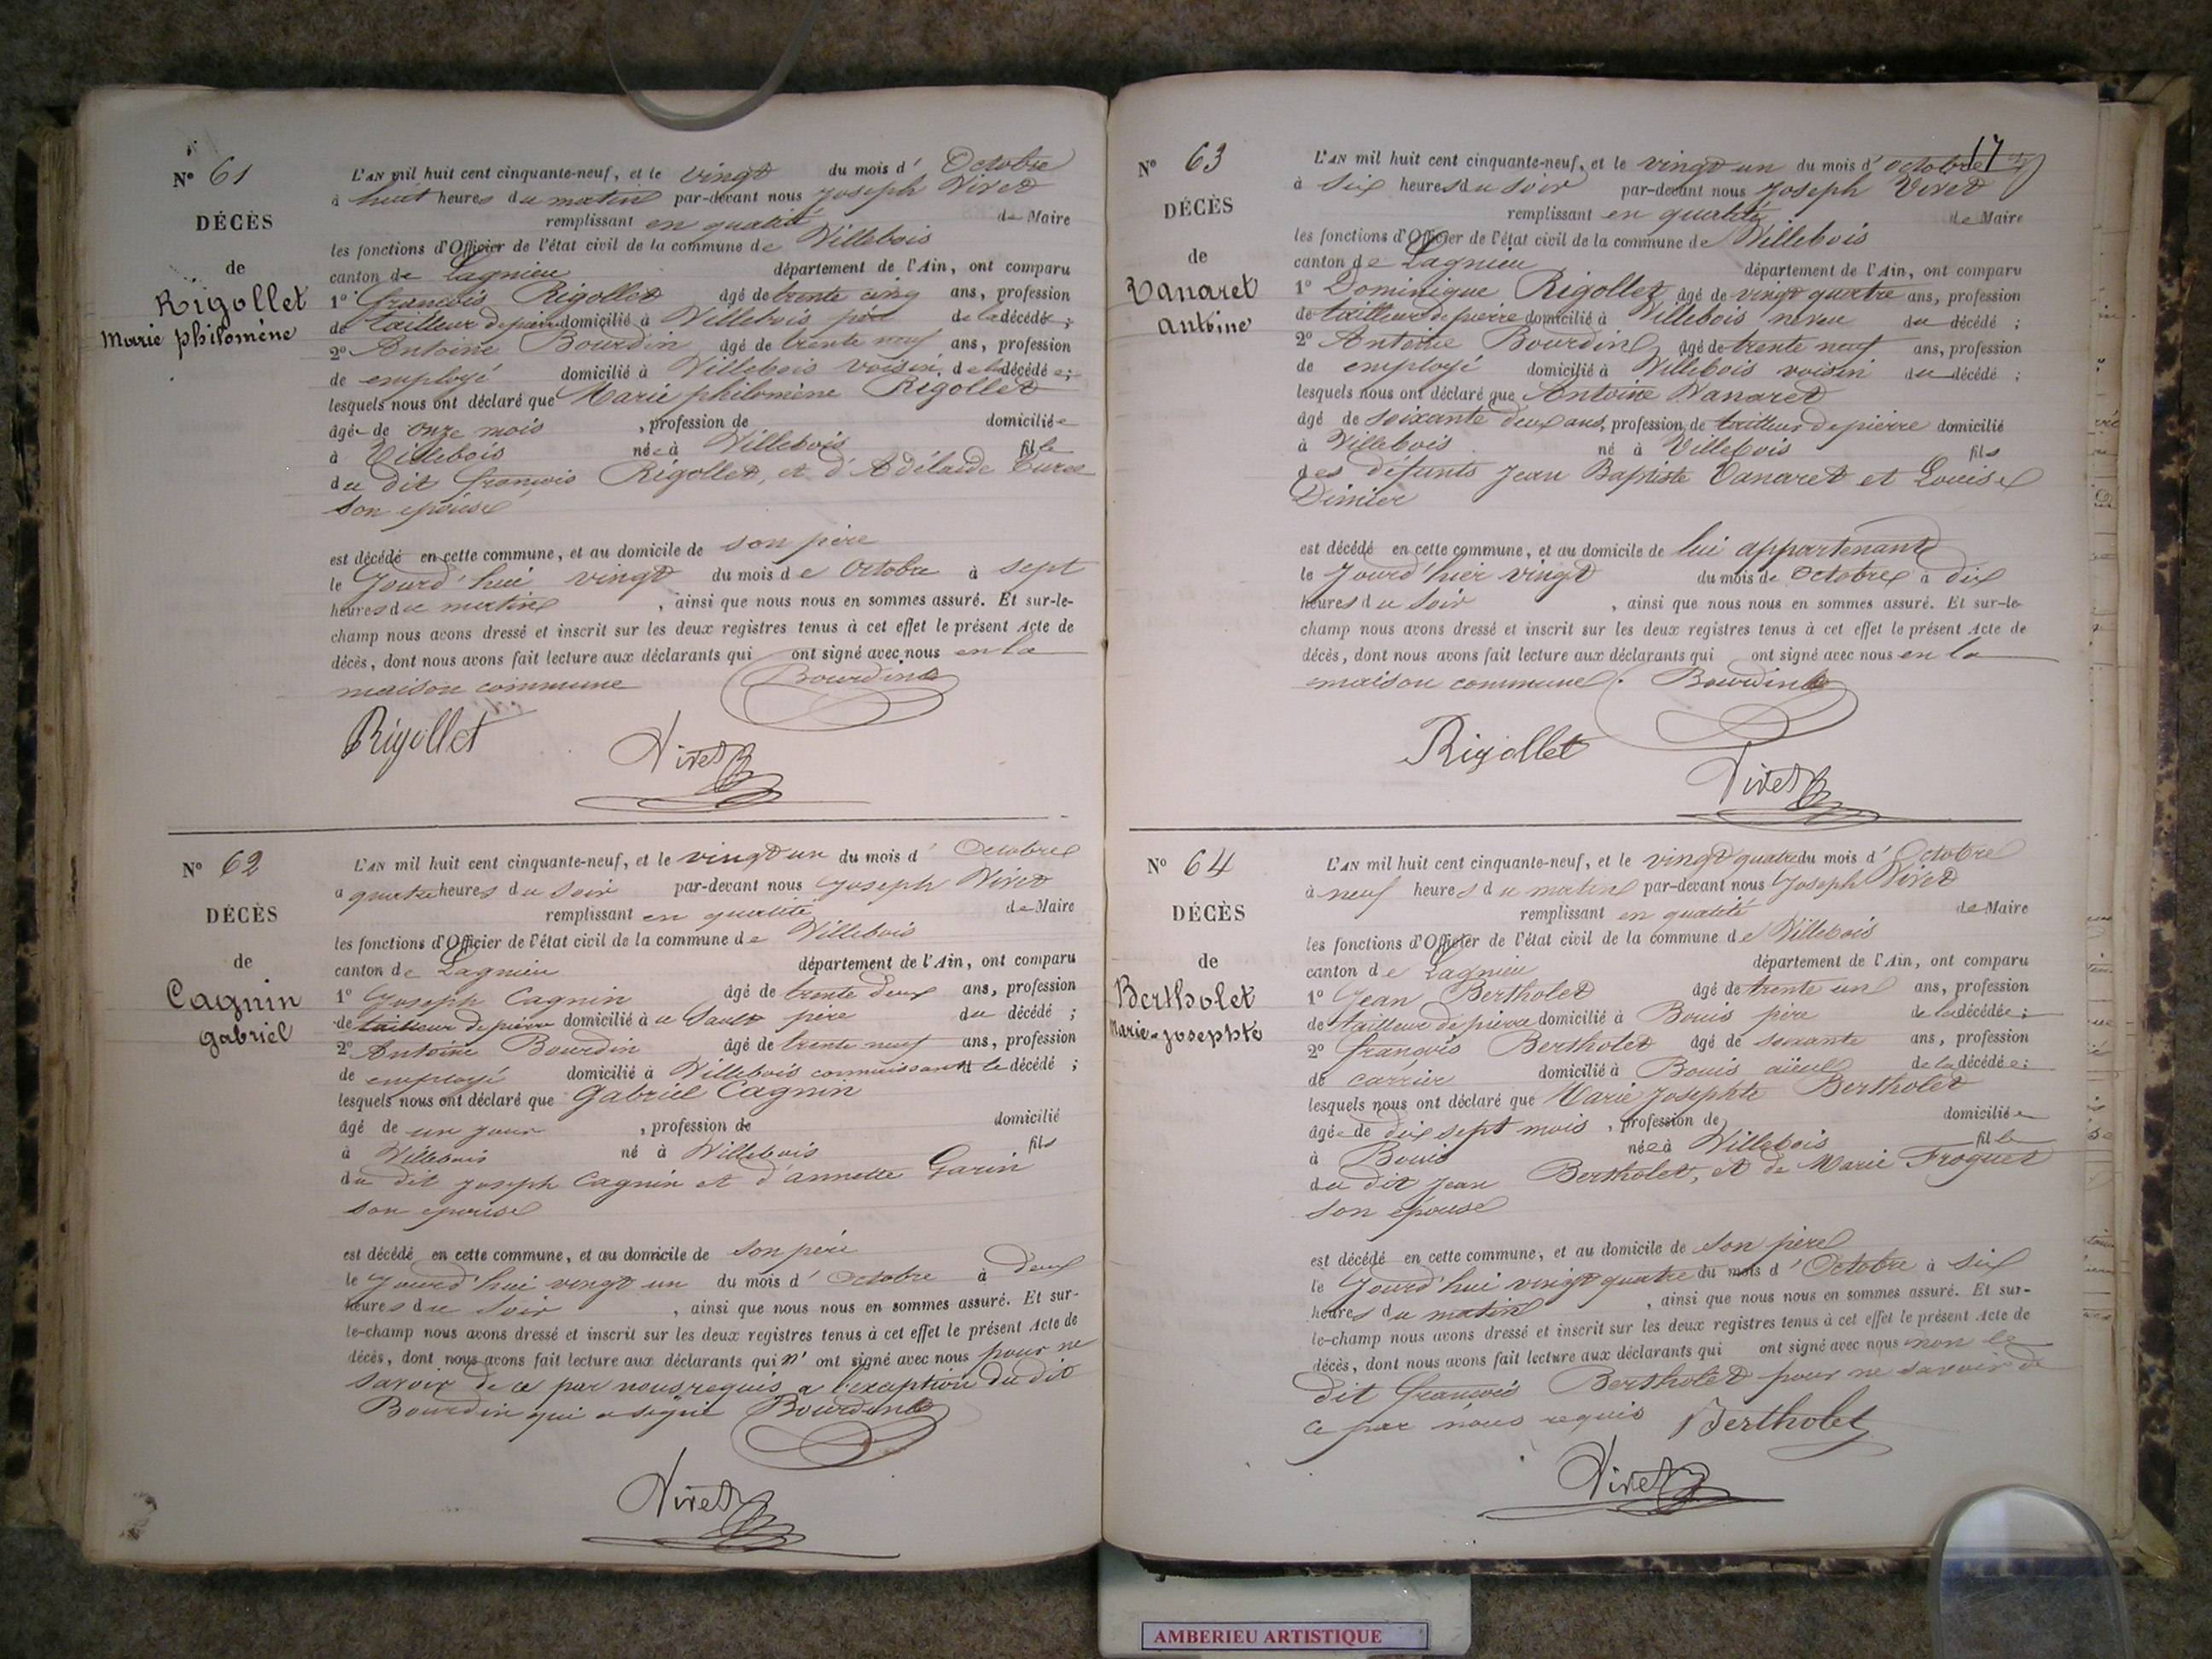 N° 61
DÉCÈS
de
Rigollet
Marie philomène
L'AN mil huit cent cinquante-neuf, et le vingt du mois d' Octobre
à huit heures du matin par-devant nous Joseph Vivet
remplissant en qualité de Maire
les fonctions d'Officier de l'état civil de la commune de Villebois
canton de Lagnieu département de l'Ain, ont comparu
1° François Rigollet âgé de trente cinq ans, profession
de tailleur de pierre domicilié à Villebois père de la décédée ;
2° Antoine Bourdin âgé de trente neuf ans, profession
de employé domicilié à Villebois voisin de la décédée ;
lesquels nous ont déclaré que Marie philomène Rigollet
âgée de onze mois , profession de domiciliée
à Villebois née à Villebois fille
du dit françois Rigollet, et d'Adélaide
son épouse
est décédé en cette commune, et au domicile de son père
le Jourd'hui vingt du mois de Octobre à sept
heures du matin , ainsi que nous nous en sommes assuré. Et sur-le-
champ nous avons dressé et inscrit sur les deux registres tenus à cet effet le présent Acte de
décès, dont nous avons fait lecture aux déclarants qui ont signé avec nous en la
maison commune Bourdin
Rigollet
Vivet
N° 62
DÉCÈS
de
Cagnin
gabriel
L'AN mil huit cent cinquante-neuf, et le vingt un du mois d' Octobre
à quatre heures du soir par-devant nous Joseph Vivet
remplissant en qualité de Maire
les fonctions d'Officier de l'état civil de la commune de Villebois
canton de Lagnieu département de l'Ain, ont comparu
1° Joseph Cagnin âgé de trente deux ans, profession
de tailleur de pierre domicilié à u Sault père du décédé ;
2° Antoine Bourdin âgé de trente neuf ans, profession
de employé domicilié à Villebois connaissant le décédé ;
lesquels nous ont déclaré que Gabriel Cagnin
âgé de un jour , profession de domicilié
à Villebois né à Villebois fils
du dit joseph Cagnin et d'annette Garin
son épouse
est décédé en cette commune, et au domicile de son père
le Jourd'hui vingt un du mois d' Octobre à deux
heures du soir , ainsi que nous nous en sommes assuré. Et sur-
le-champ nous avons dressé et inscrit sur les deux registres tenus à cet effet le présent Acte de
décès, dont nous avons fait lecture aux déclarants qui n' ont signé avec nous pour ne
savoir de ce par nous requis a l'exception du dit
Bourdin qui a signé Bourdin
Vivet
17
N° 63
DÉCÈS
de
Vanaret
antoine
L'AN mil huit cent cinquante-neuf, et le vingt un du mois d' octobre
à six heures du soir par-devant nous Joseph Vivet
remplissant en qualité de Maire
les fonctions d'Officier de l'état civil de la commune de Villebois
canton de Lagnieu département de l'Ain, ont comparu
1° Dominique Rigollet âgé de vingt quatre ans, profession
de tailleur de pierre domicilié à Villebois neveu du décédé ;
2° Antoine Bourdin âgé de trente neuf ans, profession
de employé domicilié à Villebois voisin du décédé ;
lesquels nous ont déclaré que Antoine Vanaret
âgé de soixante deux ans, profession de tailleur de pierre domicilié
à Villebois né à Villebois fils
des défunts Jean Baptiste Vanaret et Louise
Dimier
est décédé en cette commune, et au domicile de lui appartenant
le Jourd'hier vingt du mois de Octobre à dix
heures du soir , ainsi que nous nous en sommes assuré. Et sur-le-
champ nous avons dressé et inscrit sur les deux registres tenus à cet effet le présent Acte de
décès, dont nous avons fait lecture aux déclarants qui ont signé avec nous en la
maison commune. Bourdin
Rigollet
Vivet
N° 64
DÉCÈS
de
Bertholet
Marie-josephte
L'AN mil huit cent cinquante-neuf, et le vingt quatre du mois d' Octobre
à neuf heures du matin par-devant nous Joseph Vivet
remplissant en qualité de Maire
les fonctions d'Officier de l'état civil de la commune de Villebois
canton de Lagnieu département de l'Ain, ont comparu
1° Jean Bertholet âgé de trente un ans, profession
de tailleur de pierre domicilié à Bouis père de la décédée ;
2° françois Bertholet âgé de soixante ans, profession
de carrier domicilié à Bouis aïeul de la décédée ;
lesquels nous ont déclaré que Marie Josephte Bertholet
âgée de dix sept mois , profession de domiciliée
à Bouis née à Villebois fille
du dit Jean Bertholet, et de Marie Froquet
son épouse
est décédé en cette commune, et au domicile de son père
le Jourd'hui vingt quatre du mois d' Octobre à six
heures du matin , ainsi que nous nous en sommes assuré. Et sur-
le-champ nous avons dressé et inscrit sur les deux registres tenus à cet effet le présent Acte de
décès, dont nous avons fait lecture aux déclarants qui ont signé avec nous non le
dit françois Bertholet pour ne savoir de
ce par nous requis Bertholet
Vivet
AMBERIEU ARTISTIQUE